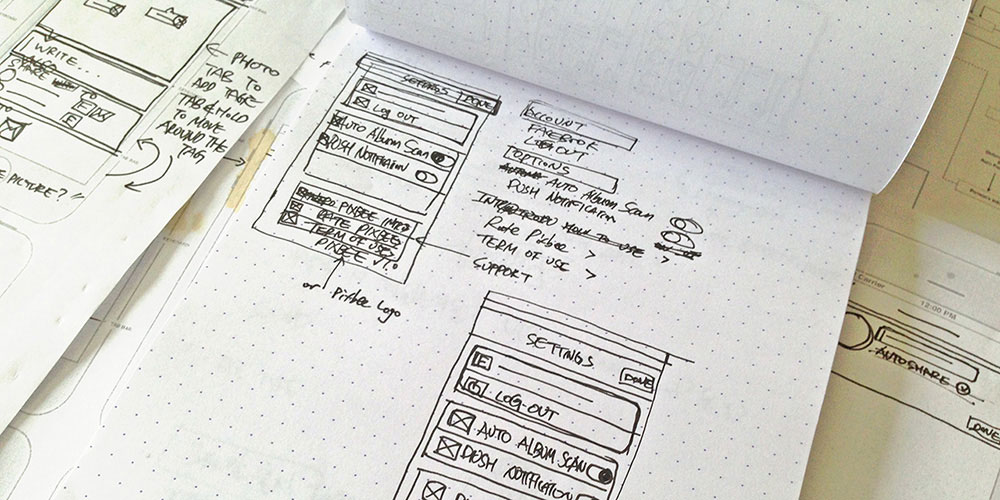 I WRITE...
SHARE TO
TO
F
E PICTURE?"
PHOTO
TAB TO
ADD
TAB & HOLD
TO MOVE
AROUND THE
TAG
SETTINGS DONE
LOG OUT
AUTO ALBUM SCAN
PUSH NOTIFICATION
PIXBEE INFO
RATE PIXBEE
TERM OF USE
PIXBEE V1.0
or Pixbee Logo
ACCOUNT
FACEBOOK
LOGOUT
OPTIONS
AUTO ALBUM SCAN
PUSH NOTIFICATION
HOW TO USE >
Rate Pixbee >
TERM OF USE >
SUPPORT
SETTINGS
DONE
F
LOG-OUT
AUTO ALBUM SCAN
PUSH NOTIFICATION
Carrier 12:00 PM
AUTOSHARE
DONE